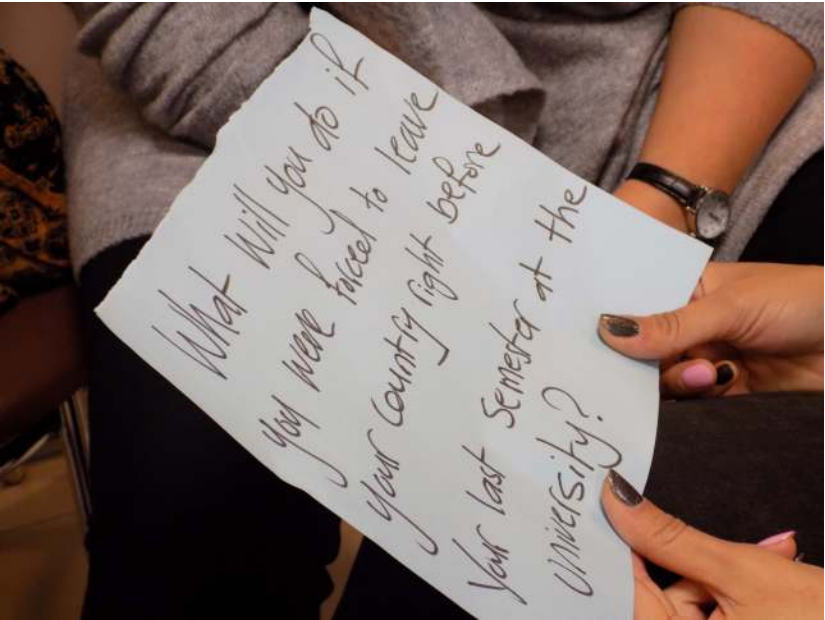 What Will you do if
you were forced to leave
your country right before
your last semester at the
university?